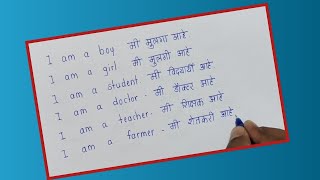 I am a boy मी मुलगा आहे
I am a girl मी मुलगी आहे
I am a student - मी विद्यार्थी आहे.
I am a doctor - मी डॉक्टर आहे
I am a teacher - मी शिक्षक आहे
I am a farmer - मी शेतकरी आहे